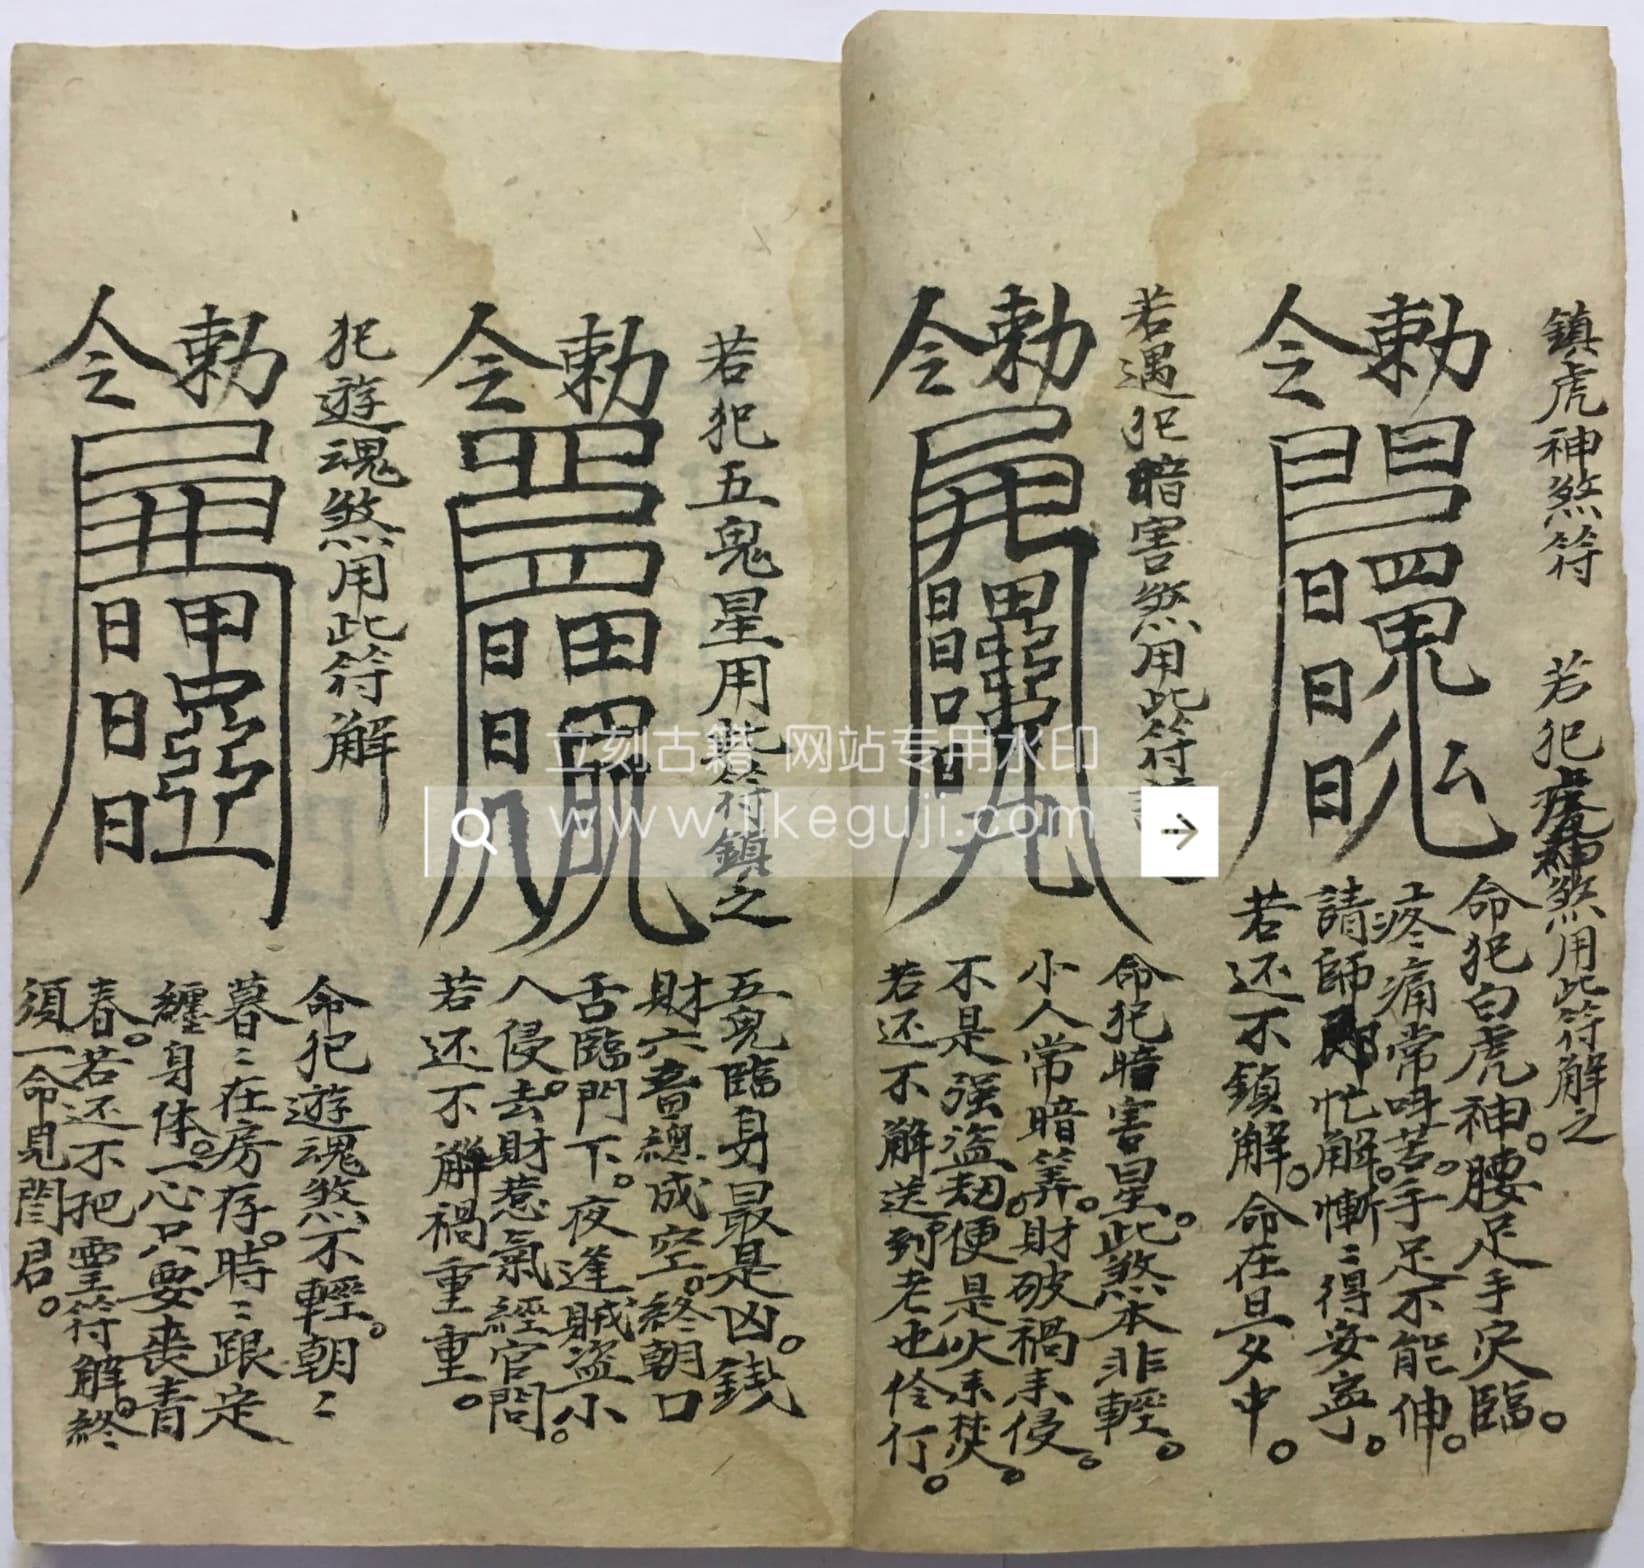 鎮虎神煞符　若犯虎神煞用此符解之
勅令
命犯白虎神。腰足手灾臨。
疼痛常呌苦。手足不能伸。
請師即忙解。慚〻得安寧。
若还不鎮解。命在旦夕中。
若遇犯暗害煞用此符
勅令
命犯暗害星。此煞本非輕。
小人常暗筭。財破禍来侵。
不是强盗刼。便是火来焚。
若还不解送到老也伶仃。
若犯五鬼星用此符鎮之
勅令
五鬼臨身最是凶。錢
財六畜總成空。終朝口
舌臨門下。夜逢賊盗小
人侵。去財惹氣經官問。
若还不解禍重重。
犯遊魂煞用此符解
勅令
命犯遊魂煞不輕。朝〻
暮〻在房存。時〻跟定
纏身体。一心只要喪青
春。若还不把灵符解。終
須一命見閻君。
立刻古籍 网站专用水印
www.likeguji.com